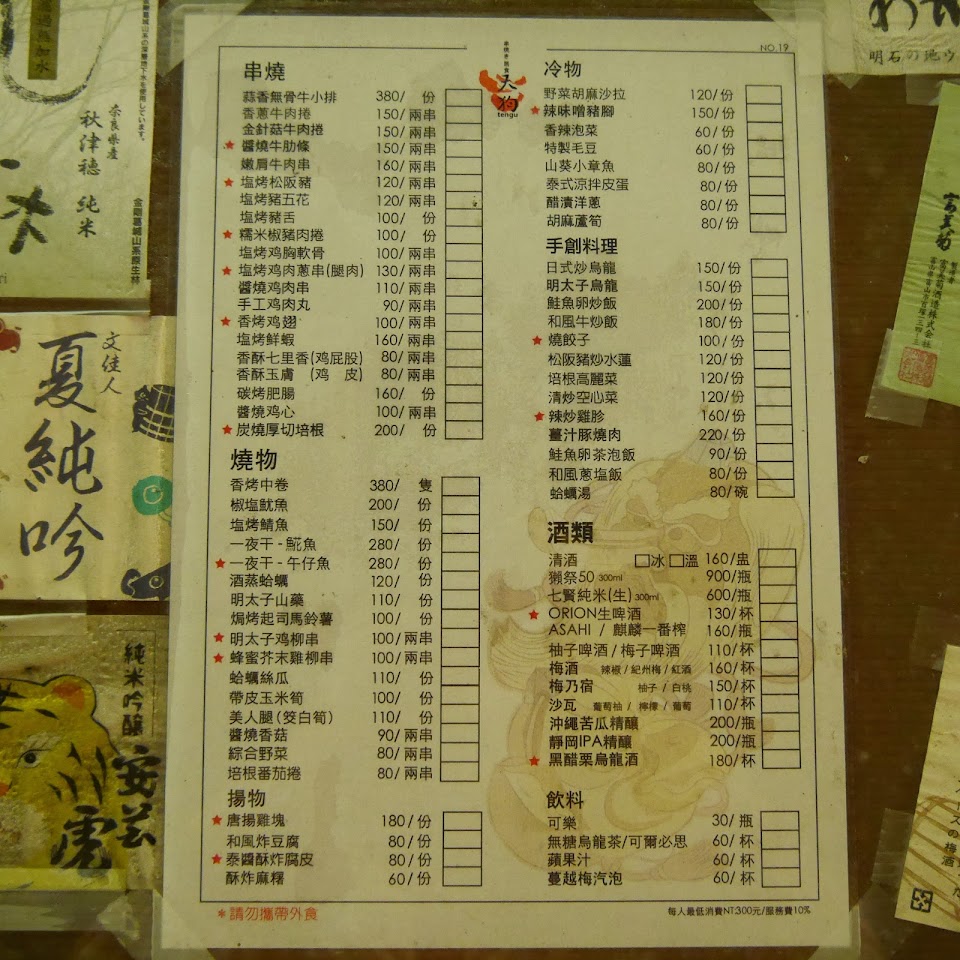 NO.19
串燒き熱食
天狗
tengu
串燒
蒜香無骨牛小排 380/ 份
香蔥牛肉捲 150/兩串
金針菇牛肉捲 150/兩串
★醬燒牛肋條 150/兩串
嫩肩牛肉串 160/兩串
★塩烤松阪豬 120/兩串
塩烤豬五花 120/兩串
塩烤豬舌 100/ 份
★糯米椒豬肉捲 100/ 份
塩烤鸡胸軟骨 100/兩串
★塩烤鸡肉蔥串(腿肉) 130/兩串
醬燒鸡肉串 110/兩串
手工鸡肉丸 90/兩串
★香烤鸡翅 100/兩串
塩烤鮮蝦 160/兩串
香酥七里香(鸡屁股) 80/兩串
香酥玉膚 (鸡 皮) 80/兩串
碳烤肥腸 160/ 份
醬燒鸡心 100/兩串
★炭燒厚切培根 200/ 份
燒物
香烤中卷 380/ 隻
椒塩魷魚 200/ 份
塩烤鯖魚 150/ 份
一夜干-鯱魚 280/ 份
★一夜干-午仔魚 280/ 份
酒蒸蛤蠣 120/ 份
明太子山藥 110/ 份
焗烤起司馬鈴薯 100/ 份
★明太子鸡柳串 100/兩串
★蜂蜜芥末雞柳串 100/兩串
蛤蠣絲瓜 110/ 份
帶皮玉米筍 100/ 份
美人腿(筊白筍) 110/ 份
醬燒香菇 90/兩串
綜合野菜 80/兩串
培根番茄捲 80/兩串
揚物
★唐揚雞塊 180/份
和風炸豆腐 80/份
★泰醬酥炸腐皮 80/份
酥炸麻糬 60/份
＊請勿攜帶外食
冷物
野菜胡麻沙拉 120/份
★辣味噌豬腳 150/份
香辣泡菜 60/份
特製毛豆 60/份
山葵小章魚 80/份
泰式涼拌皮蛋 80/份
醋漬洋蔥 80/份
胡麻蘆筍 80/份
手創料理
日式炒烏龍 150/份
明太子烏龍 150/份
鮭魚卵炒飯 200/份
和風牛炒飯 180/份
★燒餃子 100/份
松阪豬炒水蓮 120/份
培根高麗菜 120/份
清炒空心菜 120/份
★辣炒雞胗 160/份
薑汁豚燒肉 220/份
鮭魚卵茶泡飯 90/份
和風蔥塩飯 80/份
蛤蠣湯 80/碗
酒類
清酒 □冰 □溫 160/盅
獺祭50 300ml 900/瓶
七賢純米(生) 300ml 600/瓶
★ORION生啤酒 130/杯
ASAHI / 麒麟一番榨 160/瓶
柚子啤酒/梅子啤酒 110/杯
梅酒 辣椒/紀州梅/紅酒 160/杯
梅乃宿 柚子/白桃 150/杯
沙瓦 葡萄柚/檸檬/葡萄 110/杯
沖繩苦瓜精釀 200/瓶
靜岡IPA精釀 200/瓶
★黑醋栗烏龍酒 180/杯
飲料
可樂 30/瓶
無糖烏龍茶/可爾必思 60/杯
蘋果汁 60/杯
蔓越梅汽泡 60/杯
每人最低消費NT:300元/服務費10%
奈良県産
秋津穂 純米
金剛葛城山系原生林
文佳人
夏純吟
純米吟醸
安芸虎
富美菊